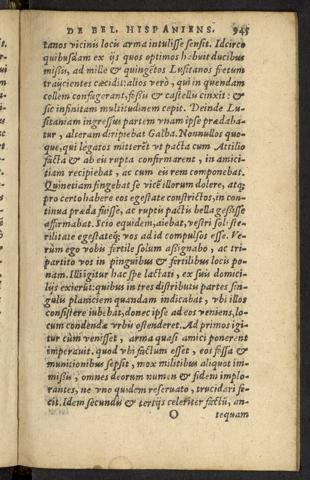 DE BEL. HISPANIENS. 945
tanos vicinū locū arma intulisse sensit. Idcirco
quibusdam ex ijs quos optimos habuit ducibus
missis, ad mille & quingētos Lusitanos fretum
traijcientes cæcidit: alios verò, qui in quendam
collem confugerant, fossu & castellu cinxit: &
sic infinitam multitudinem cepit. Deinde Lu-
sitaniam ingressus partem vnam ipse prædaba-
tur, alteram diripiebat Galba. Nonnullos quo-
que, qui legatos mitterēt vt pacta cum Attilio
facta & ab eu rupta confirmarent, in amici-
tiam recipiebat, ac cum eu rem componebat.
Quinetiam fingebat se vicē illorum dolere, atq;
pro certo habere eos egestate constrictos, in con-
tinua præda fuisse, ac ruptu pactu bella gessisse
affirmabat. Scio equidem, aiebat, vestri soli ste-
rilitate egestateq; vos ad id compulsos esse. Ve-
rùm ego vobis fertile solum assignabo, ac tri-
partito vos in pinguibus & fertilibus locis po-
nam. Illi igitur hac spe lactati, ex suis domici-
lijs exierūt: quibus in tres distributu partes sin-
gulu planiciem quandam indicabat, vbi illos
consistere iubebat, donec ipse ad eos veniens, lo-
cum condendæ vrbu ostenderet. Ad primos igi-
tur cùm venisset, arma quasi amici ponerent
imperauit. quod vbi factum esset, eos fossa &
munitionibus sepsit, mox militibus aliquot im-
missu, omnes deorum numen & fidem implo-
rantes, ne vno quidem reseruato, trucidari fe-
cit. Idem secundu & tertijs celeriter factū, an-
O tequam